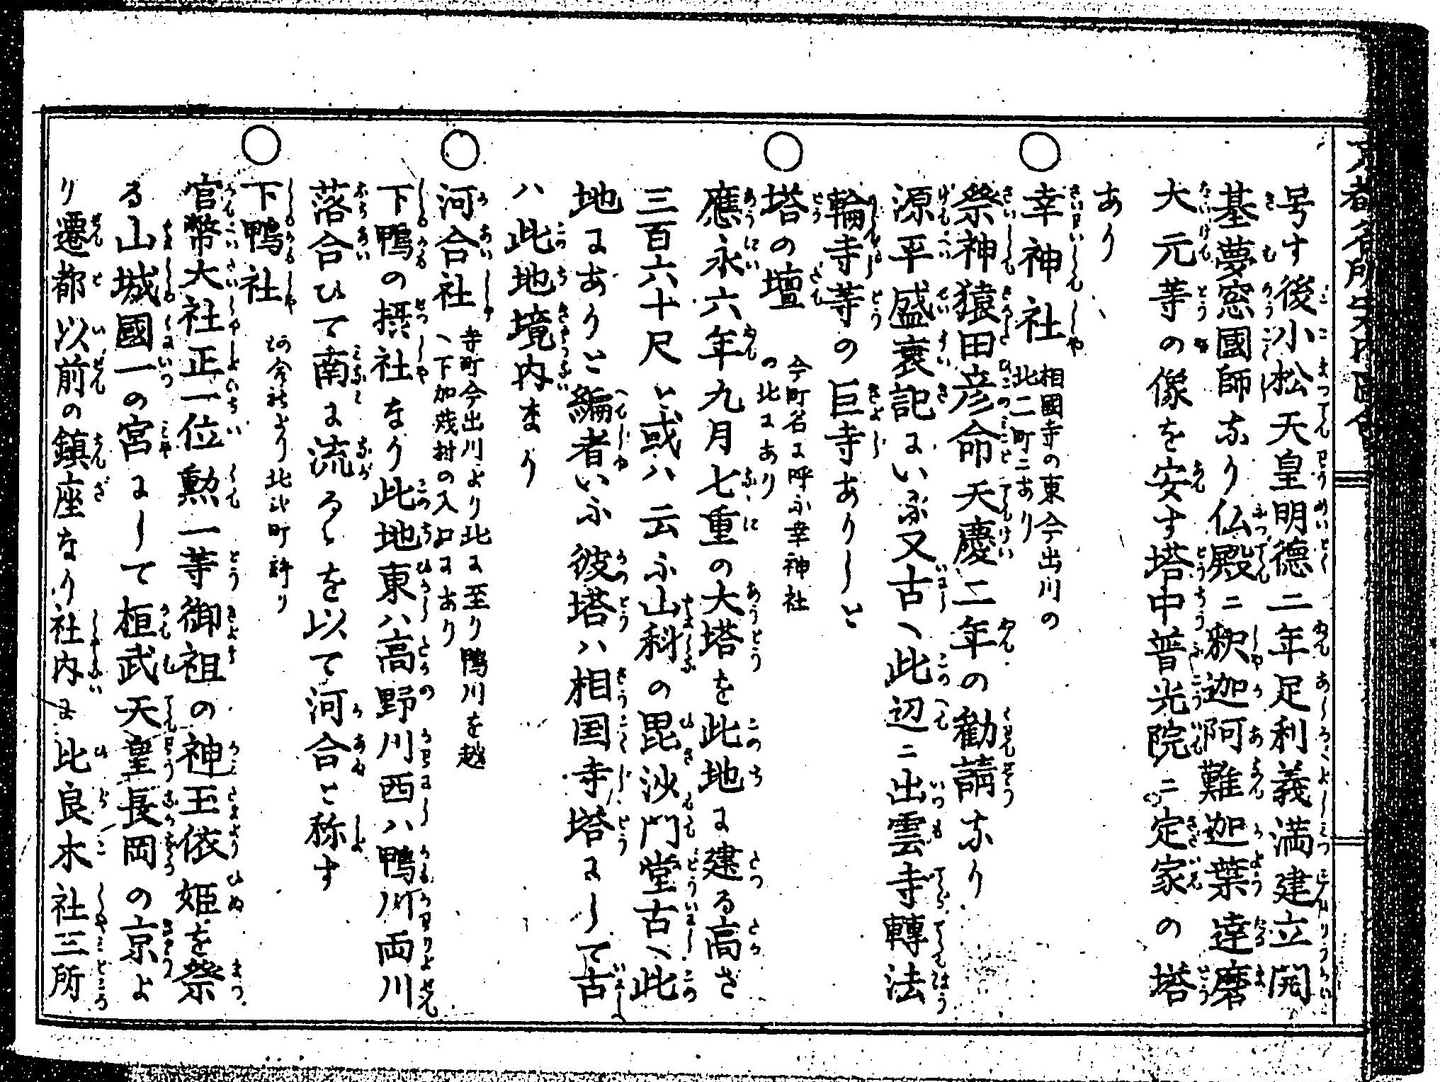 号す後小松天皇明徳二年足利義満建立開
基夢窓國師なり仏殿ニ釈迦阿難迦葉達磨
大元等の像を安す塔中普光院ニ定家の塔
あり
○幸神社 相國寺の東今出川の
北二町ニあり
祭神猿田彦命天慶二年の勧請なり
源平盛衰記にいふ又古へ此辺ニ出雲寺轉法
輪寺等の巨寺ありしと
○塔の壇 今町名に呼ふ幸神社
の北にあり
應永六年九月七重の大塔を此地に建る高さ
三百六十尺と或ハ云ふ山科の毘沙門堂古へ此
地にありと編者いふ彼塔ハ相国寺塔にして古
ハ此地境内なり
○河合社 寺町今出川より北に至り鴨川を越
へ下加茂村の入口にあり
下鴨の摂社なり此地東ハ高野川西ハ鴨川両川
落合ひて南に流るゝを以て河合と称す
○下鴨社 河合社より北半町許り
官幣大社正一位勲一等御祖の神玉依姫を祭
る山城國一の宮にして桓武天皇長岡の京よ
り遷都以前の鎮座なり社内に比良木社三所